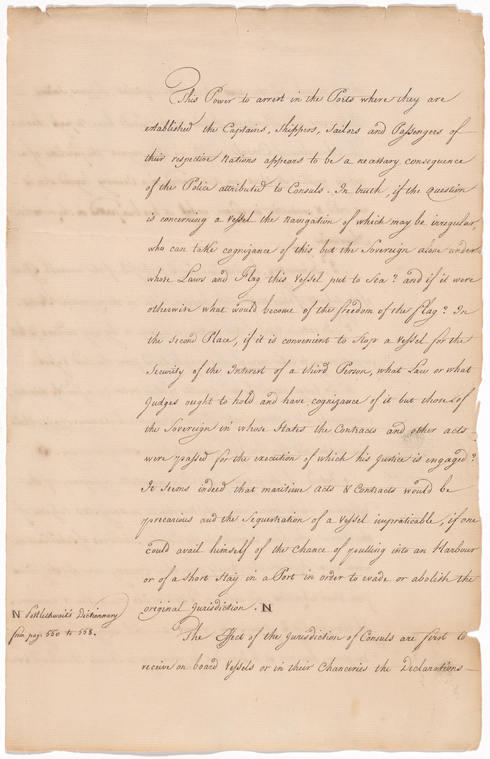 This Power to arrest in the Ports where they are
established the Captains, Skippers, Sailors and Passengers of
their respective Nations appears to be a necessary consequence
of the Police attributed to Consuls. In truth, if the Question
is concerning a Vessel the Navigation of which may be irregular,
who can take cognizance of this but the Sovereign alone under
whose Laws and Flag this Vessel put to Sea? and if it were
otherwise what would become of the freedom of the flag? In
the Second Place, if it is convenient to Stop a Vessel for the
Security of the Interest of a third Person, what Law or what
Judges ought to hold and have cognizance of it but those of
the Sovereign in whose States the Contracts and other acts
were passed for the execution of which his Justice is engaged?
It Seems indeed that maritime Acts & Contracts would be
precarious and the Sequestration of a Vessel impraticable, if one
could avail himself of the Chance of pulling into an Harbour
or of a short Stay in a Port in order to evade or abolish the
original Jurisdiction. N
N Postlethwait's Dictionnary
from pag. 550 to 558.
The Effect of the Jurisdiction of Consuls are first to
receive on board Vessels or in their Chanceries the Declarations